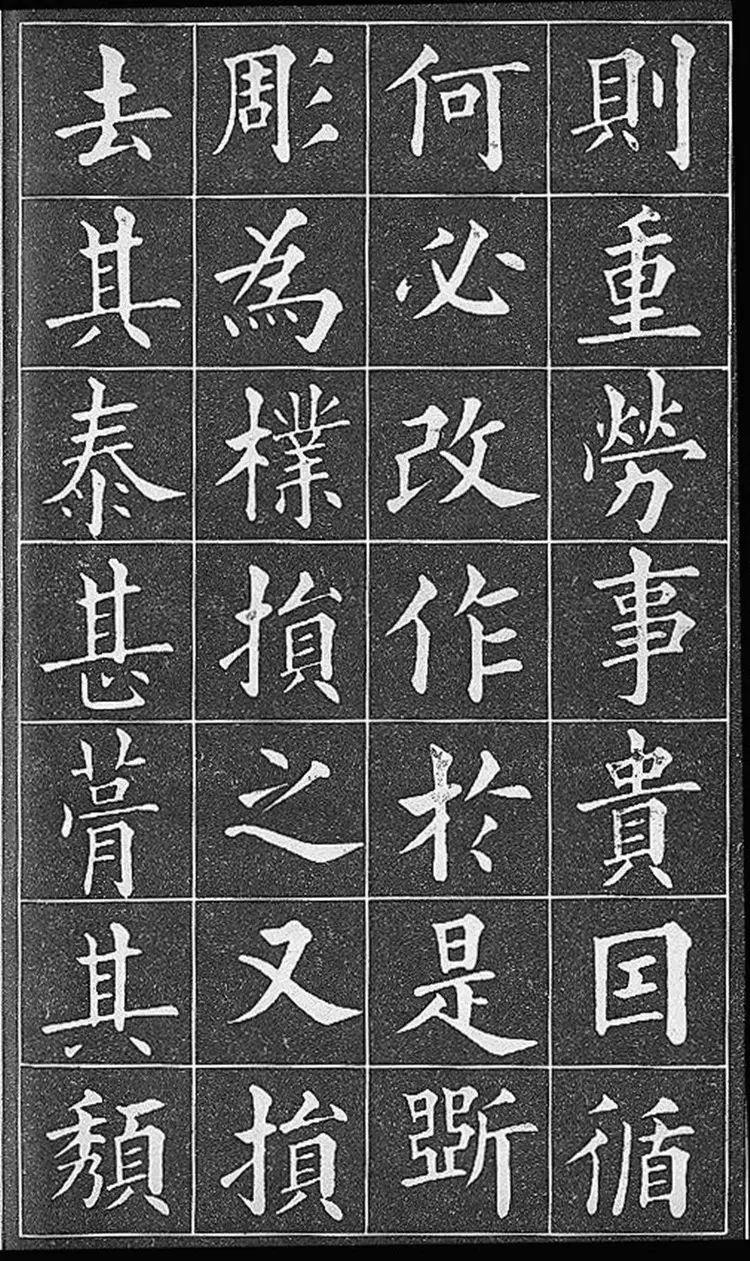 則重勞事貴囙循
何必改作於是斲
彫為樸損之又損
去其泰甚葺其頹